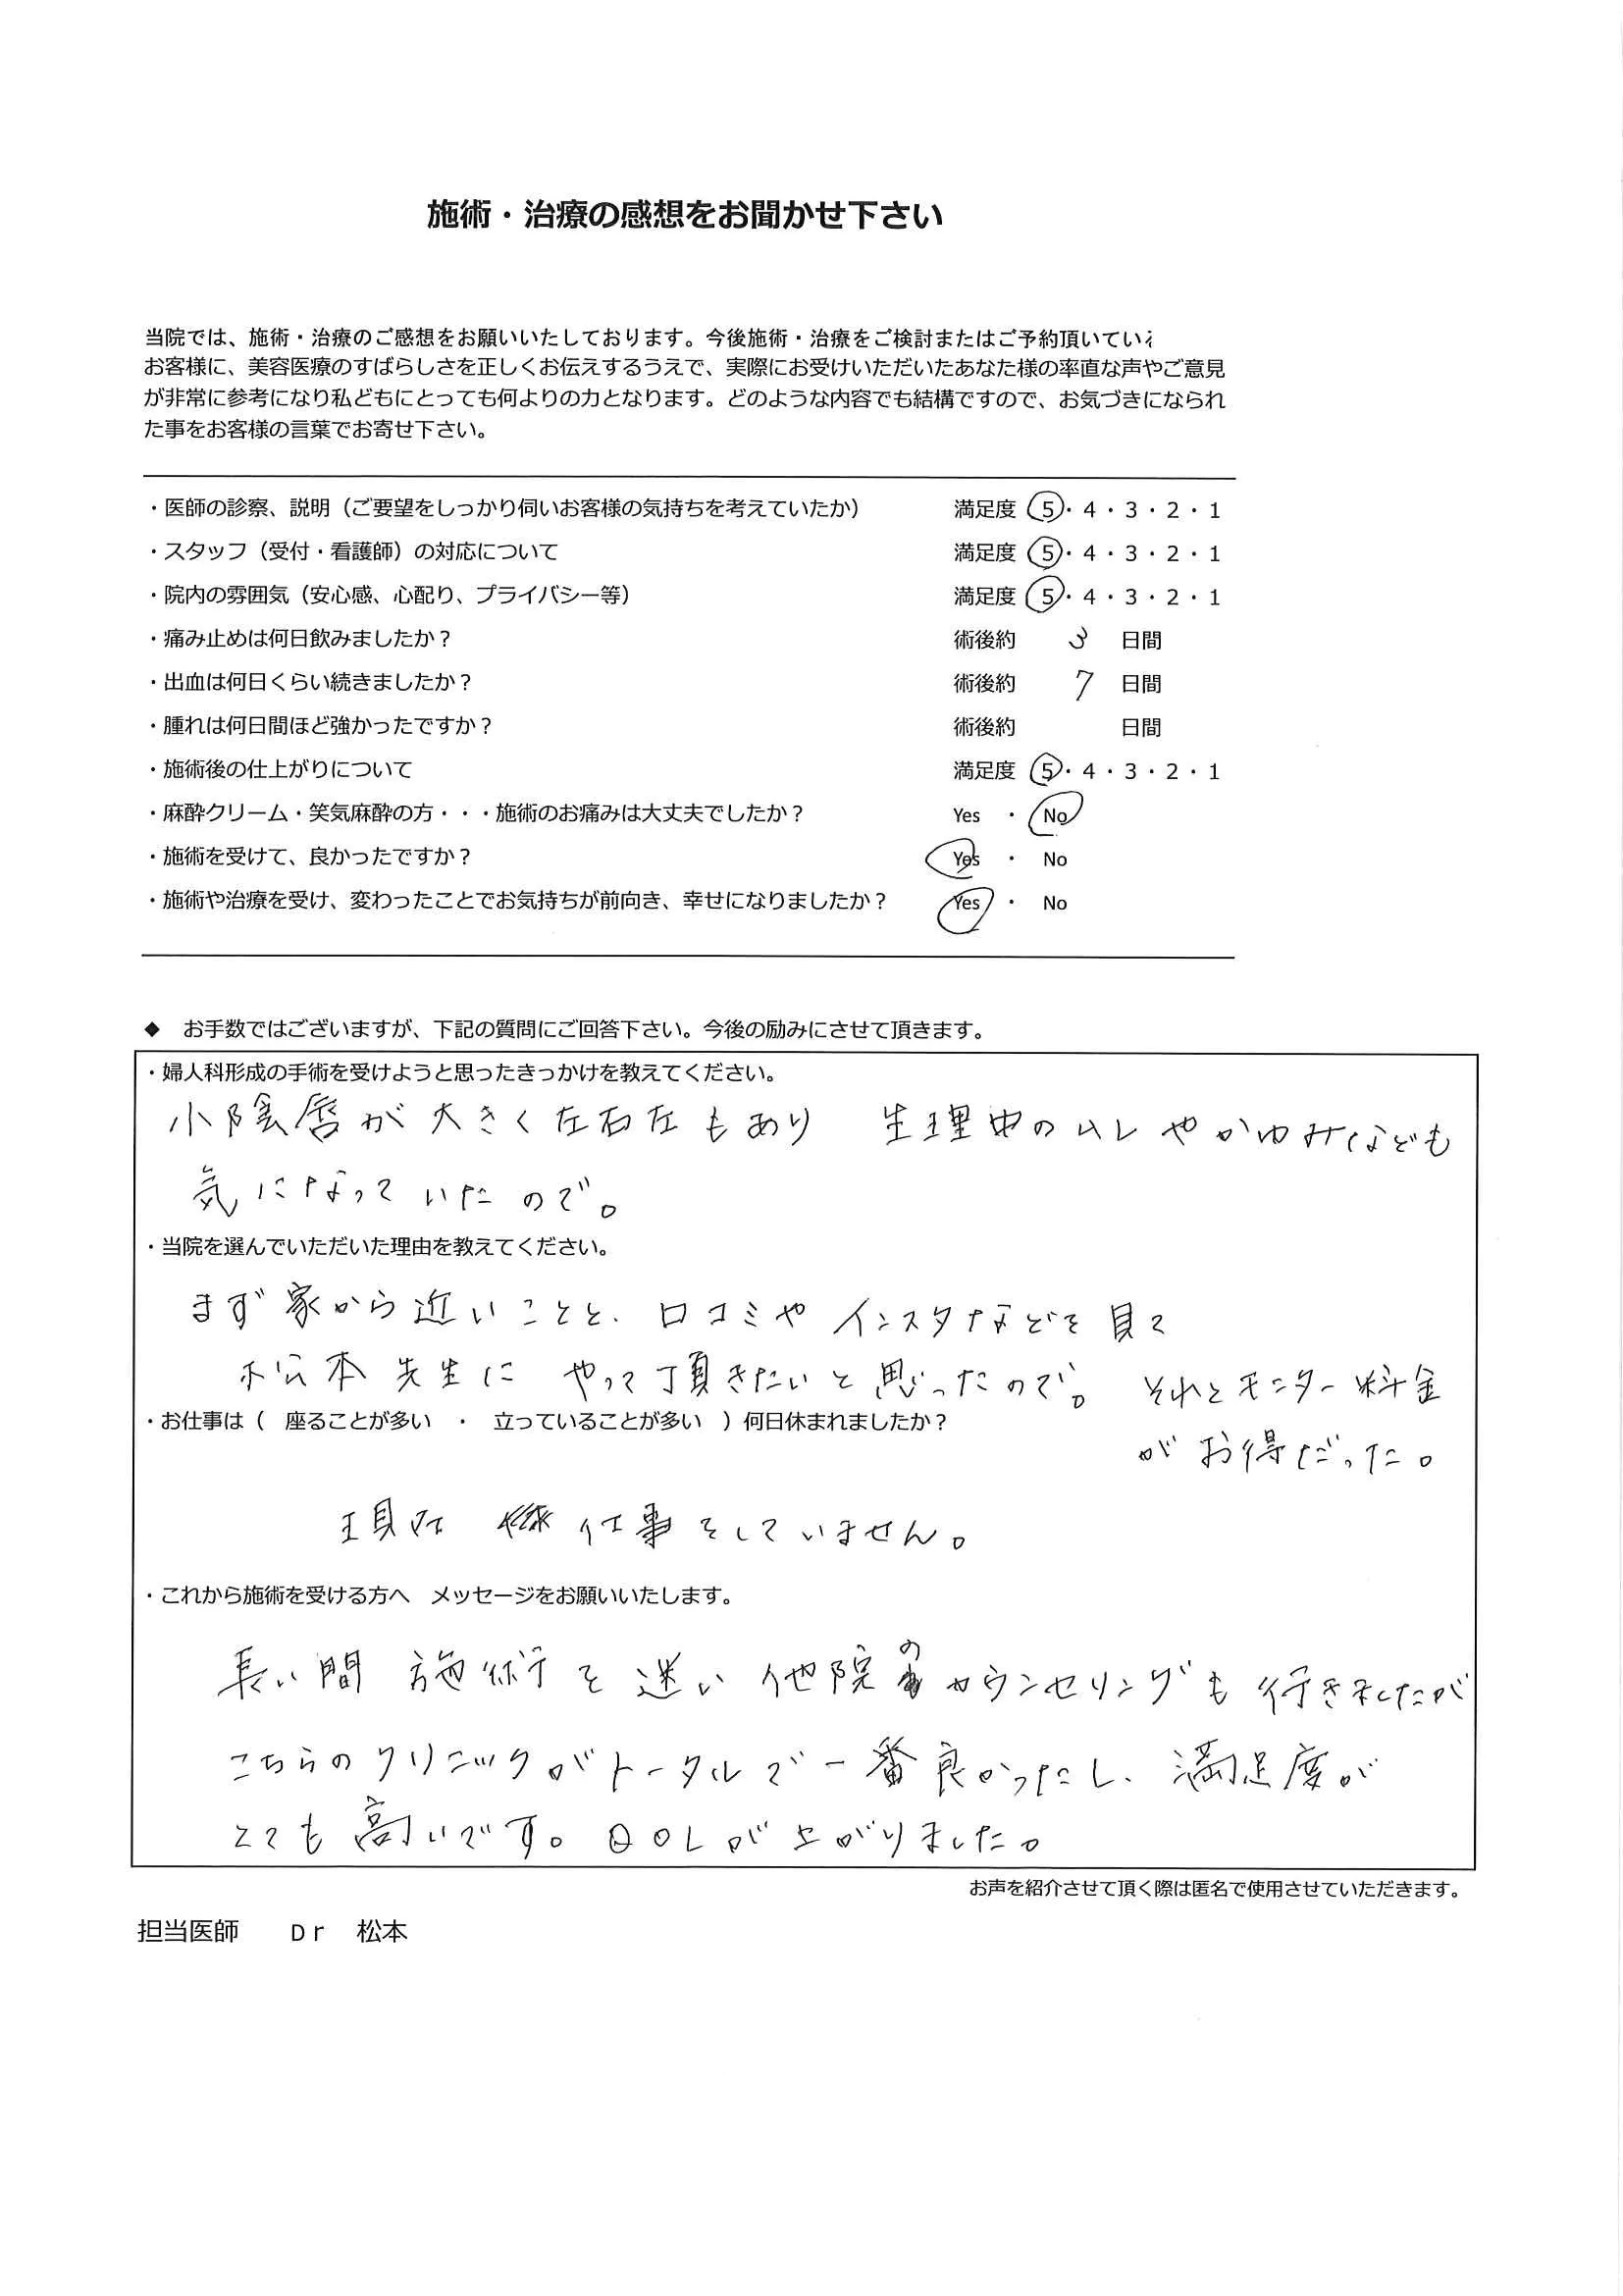 施術・治療の感想をお聞かせ下さい
当院では、施術・治療のご感想をお願いいたしております。今後施術・治療をご検討またはご予約頂いてい
お客様に、美容医療のすばらしさを正しくお伝えするうえで、実際にお受けいただいたあなた様の率直な声やご意見
が非常に参考になり私どもにとっても何よりの力となります。どのような内容でも結構ですので、お気づきになられ
た事をお客様の言葉でお寄せ下さい。
・医師の診察、説明（ご要望をしっかり伺いお客様の気持ちを考えていたか） 満足度 5・4・3・2・1
・スタッフ（受付・看護師）の対応について 満足度 5・4・3・2・1
・院内の雰囲気（安心感、心配り、プライバシー等） 満足度 5・4・3・2・1
・痛み止めは何日飲みましたか？ 術後約 3 日間
・出血は何日くらい続きましたか？ 術後約 7 日間
・腫れは何日間ほど強かったですか？ 術後約 日間
・施術後の仕上がりについて 満足度 5・4・3・2・1
・麻酔クリーム・笑気麻酔の方・・・施術のお痛みは大丈夫でしたか？ Yes ・ No
・施術を受けて、良かったですか？ Yes ・ No
・施術や治療を受け、変わったことでお気持ちが前向き、幸せになりましたか？ Yes ・ No
◆ お手数ではございますが、下記の質問にご回答下さい。今後の励みにさせて頂きます。
・婦人科形成の手術を受けようと思ったきっかけを教えてください。
小陰唇が大きく左右左もあり 生理中のムレやかゆみなども
気になっていたので。
・当院を選んでいただいた理由を教えてください。
まず家から近いことと、口コミやインスタなどを見て
松本先生に やって頂きたいと思ったので。 それとモニター料金
がお得だった。
・お仕事は（ 座ることが多い ・ 立っていることが多い ）何日休まれましたか？
現在 仕事をしていません。
・これから施術を受ける方へ メッセージをお願いいたします。
長い間 施術を迷い 他院のカウンセリングも行きましたが
こちらのクリニックがトータルで一番良かったし、満足度が
とても高いです。QOLが上がりました。
お声を紹介させて頂く際は匿名で使用させていただきます。
担当医師 Dr 松本